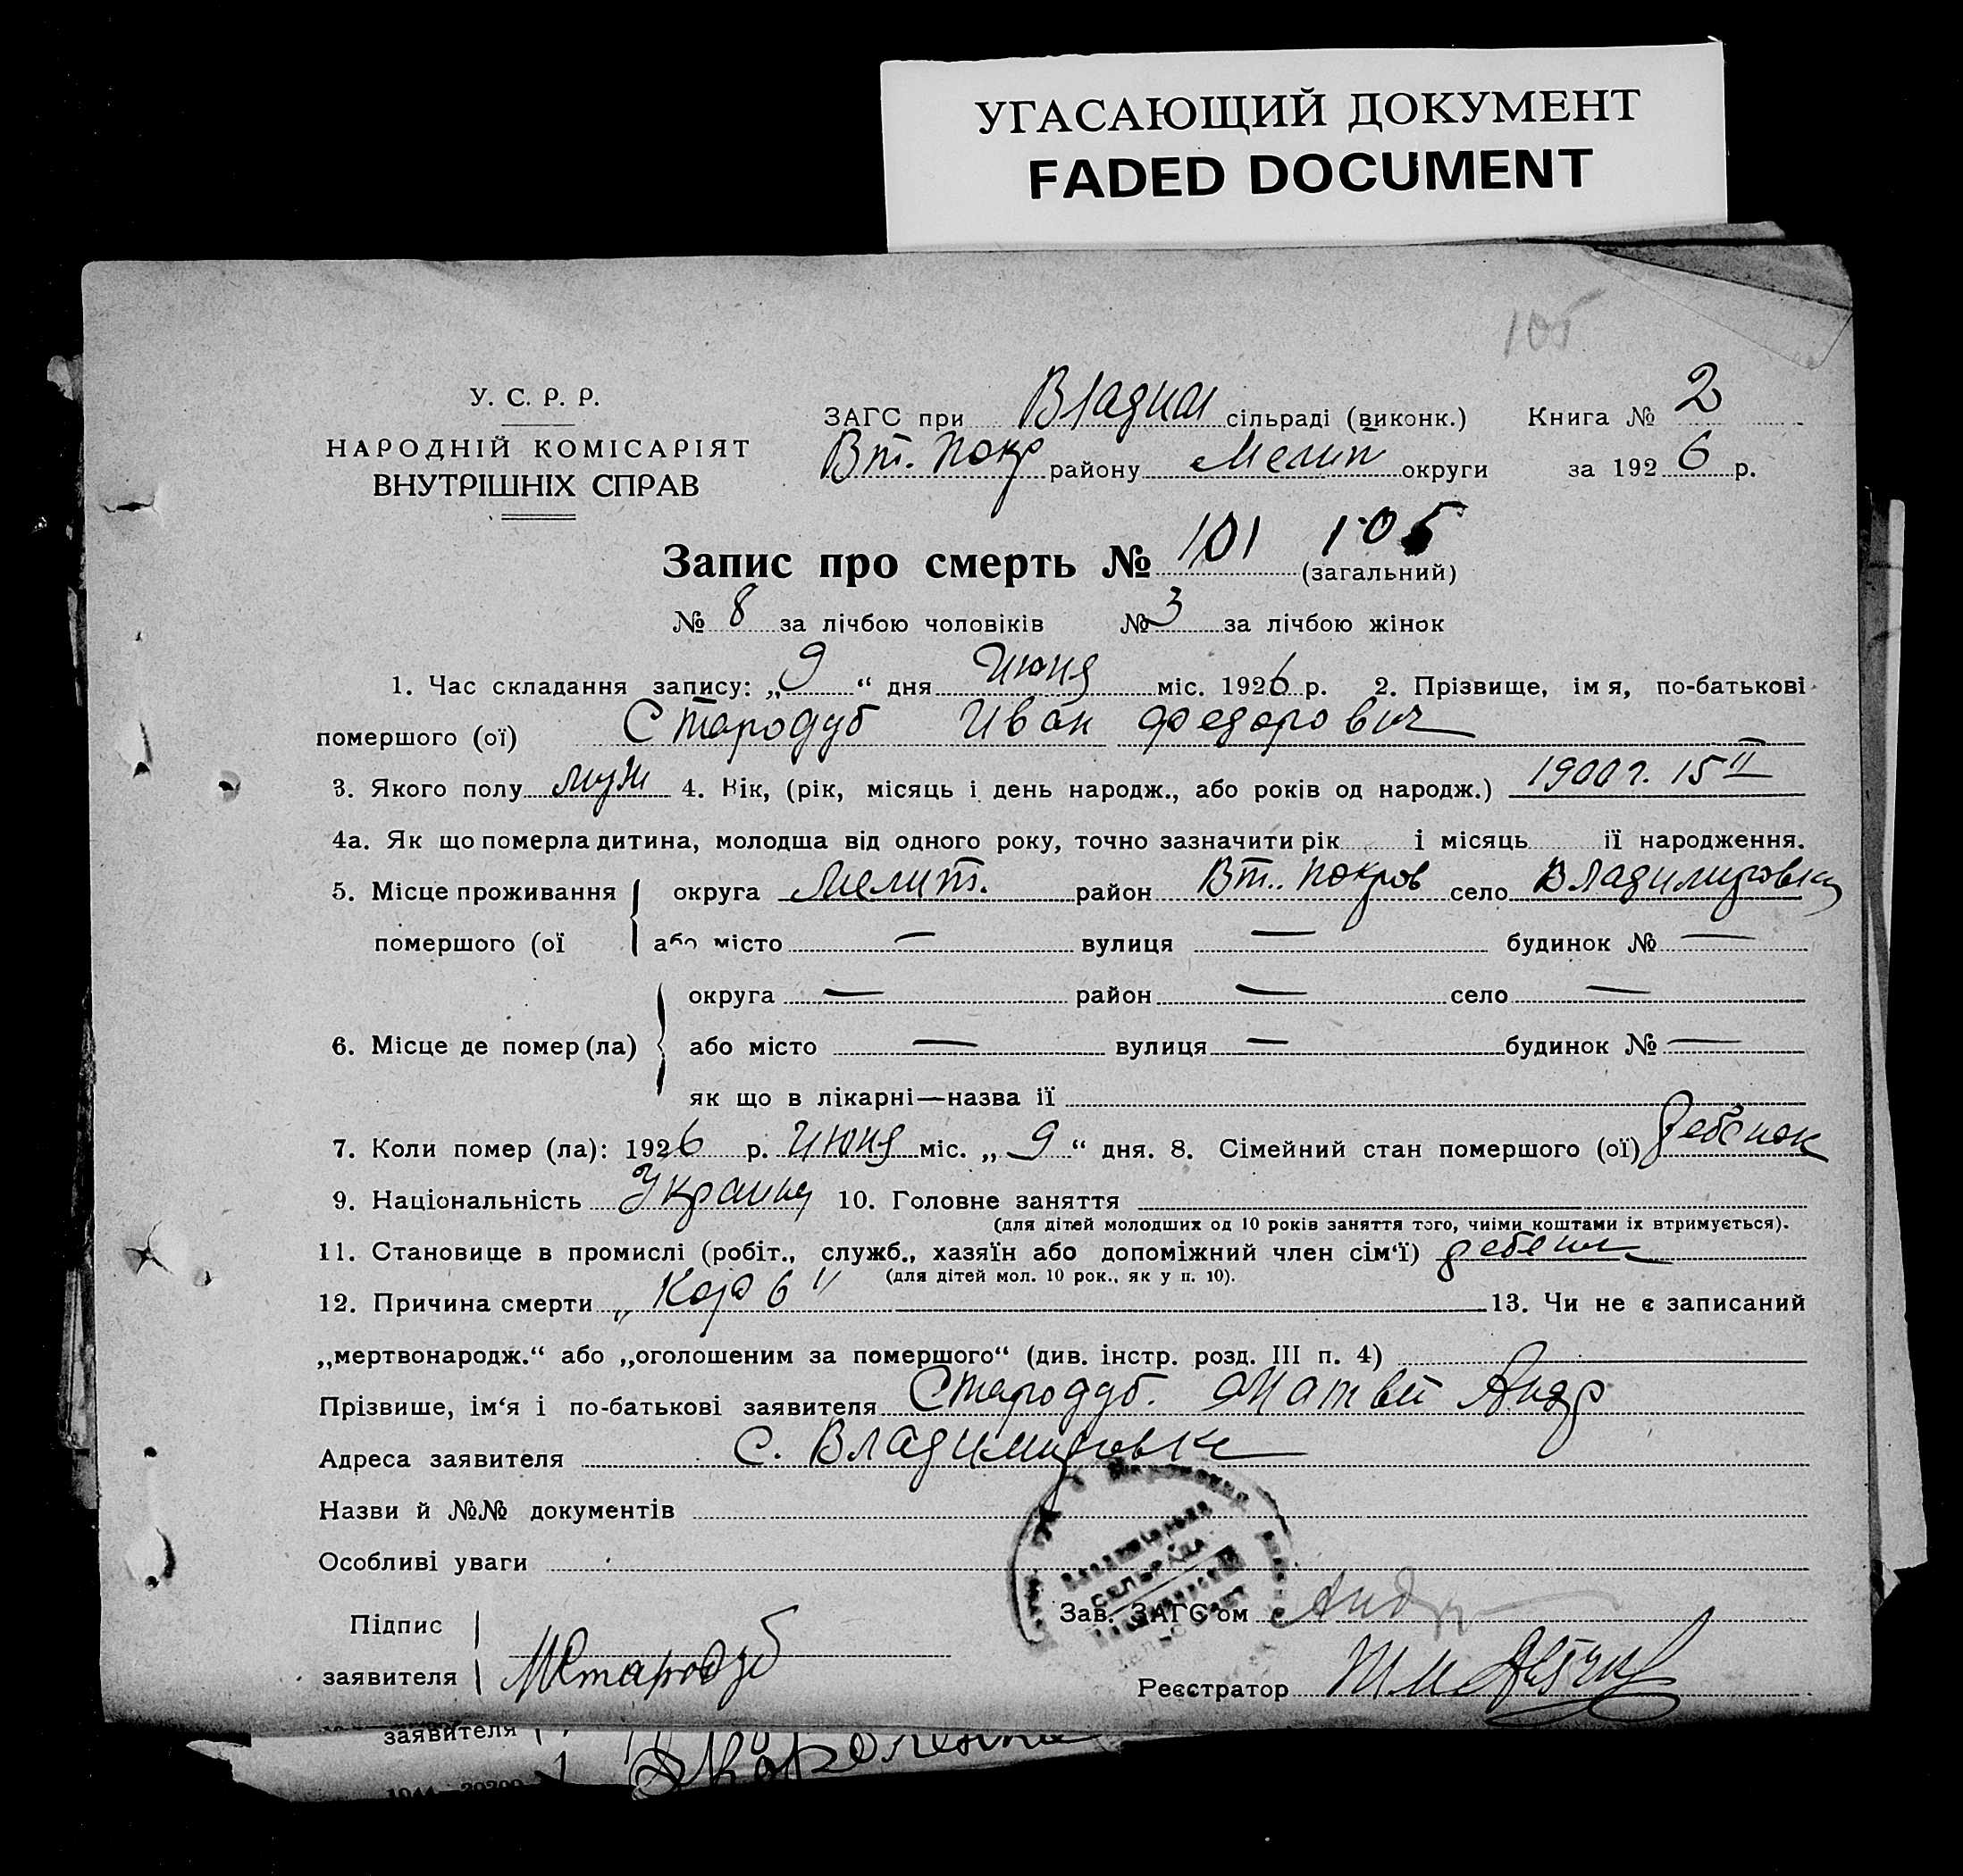 УГАСАЮЩИЙ ДОКУМЕНТ
FADED DOCUMENT
105
У. С. Р. Р.
НАРОДНІЙ КОМІСАРІЯТ
ВНУТРІШНІХ СПРАВ
ЗАГС при Владим сільраді (виконк.) Книга № 2
Вт. Покр району Мелит округи за 1926 р.
Запис про смерть № 101 105
(загальний)
№ 8 за лічбою чоловіків № 3 за лічбою жінок
1. Час складання запису: „9“ дня Июня міс. 1926 р. 2. Прізвище, імя, по-батькові
помершого (ої) Стародуб Иван Федорович
3. Якого полу муж 4. Вік, (рік, місяць і день народж., або років од народж.) 1900 г. 15 II
4а. Як що померла дитина, молодша від одного року, точно зазначити рік і місяць її народження.
5. Місце проживання округа Мелит. район Вт. Покров село Владимировка
помершого (ої або місто — вулиця — будинок № —
округа — район — село —
6. Місце де помер (ла) або місто — вулиця — будинок № —
як що в лікарні—назва її
7. Коли помер (ла): 1926 р. Июня міс. „9“ дня. 8. Сімейний стан помершого (ої) ребенок
9. Національність Украинц 10. Головне заняття
(для дітей молодших од 10 років заняття того, чиіми коштами іх втримується).
11. Становище в промислі (робіт., служб., хазяїн або допоміжний член сім‘ї) ребенок
(для дітей мол. 10 рок., як у п. 10).
12. Причина смерти „Корь“ 13. Чи не є записаний
„мертвонародж.“ або „оголошеним за помершого“ (див. інстр. розд. III п. 4)
Прізвише, ім‘я і по-батькові заявителя Стародуб. Матвей Андр
Адреса заявителя с. Владимировка
Назви й №№ документів
Особливі уваги
СЕЛЬРАДА
Зав. ЗАГС‘ом
Підпис
заявителя МСтародуб
Реєстратор
заявителя